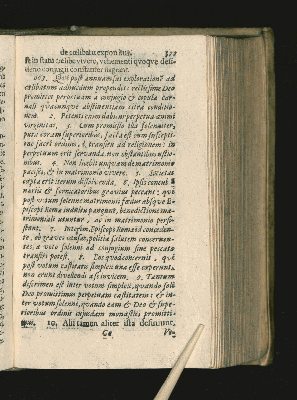 de cœlibatu expositus. 373
st in statu cœlibe vivere, vehementi quoque desi-
derio conjugii constanter flagrant.
Qui post annuam sui explorationē ad
cœlibatum adducendum
promittit perpetuam à conjugio & copula car-
nali quacunque abstinentiam citra conditio-
nem. 2. Petenti enim dabitur perpetua animi
virginitas. 3. Cum promissio illa solenniter,
puta coram superioribus, facta est cum suscepti-
one sacri ordinis, & transitu ad religionem: in
perpetuum erit servanda, non obstantibus ustio-
nibus. 4. Non licebit unquam de matrimonio
pacisci, & in matrimonio vivere. 5. Societas
cœpta erit iterum dissolvenda. 6. Ipsis concubi-
nariis & fornicatoribus gravius peccant, qui
post votum solenne matrimonii fœdus absque E-
piscopi Romæ indultu pangunt, benedictione ma-
trimoniali utuntur, ac in matrimonio persi-
stunt. 7. Interim, Episcopo Romæ id conceden-
te, ob graves causas, politiæ salutem concernen-
tes, à voto solenni ad conjugium sine peccato
transiri potest. 8. Ejus quoq; concernit, qui
post votum nonnisi simplex una esse coeperunt,
uno erunt divellendi à se invicem. 9. Tantum
discrimen est inter votum simplex, quando soli
Deo promittimus perpetuam castitatem: & in-
ter votum solenne, quando eam & Deo & supe-
rioribus ordinis cujusdam monastici promitti-
mus. 10. Alii tamen aliter ista definiunt,
Cc